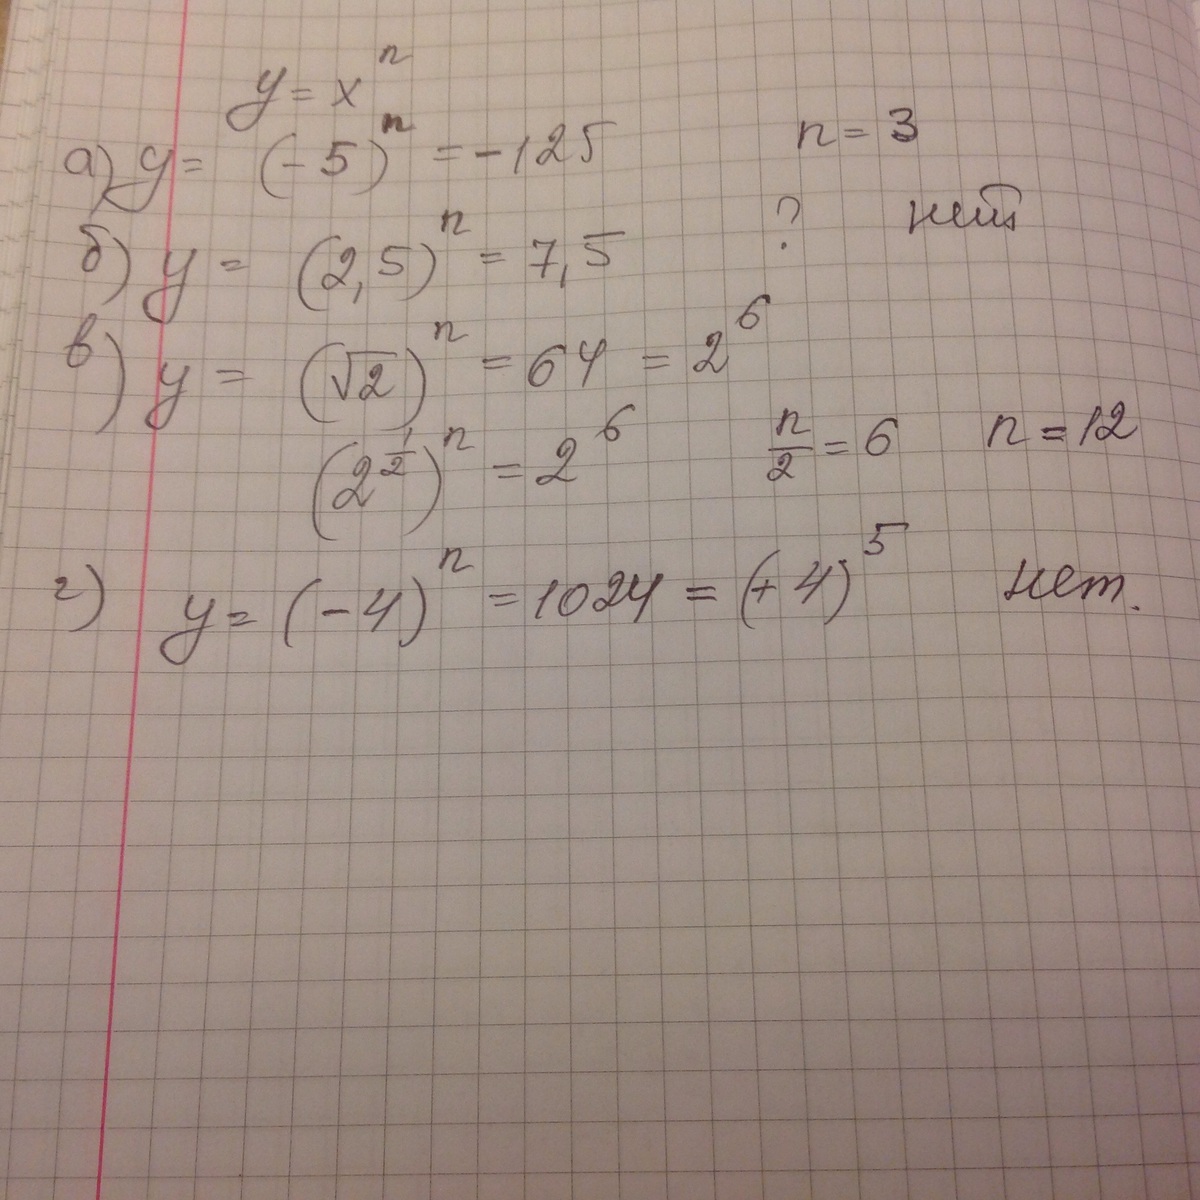 y = xⁿ
а) y = (-5)ⁿ = -125 n = 3
б) y = (2,5)ⁿ = 7,5 ? нет
в) y = (√2)ⁿ = 64 = 2⁶
(2^(1/2))ⁿ = 2⁶ n/2 = 6 n = 12
г) y = (-4)ⁿ = 1024 = (+4)⁵ нет.